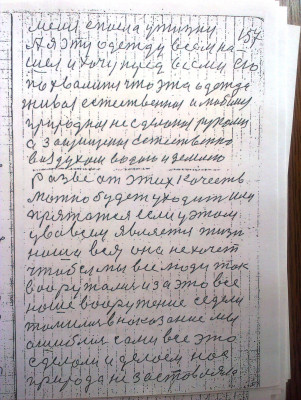 меня спасла у жизни 157
А я эту одежду всем на
шел и хочу пред всеми его
похвалити что эта одежда
живая естественная и любимая
природная не сделаная руками
а защищена естественно
воздухом водою и землею
разве от этих качеств
можно будет уходит или
прятатся если у этом
у во всем является жизн
наша вся она не хочет
чтобы мы все люди так
вооружали и за это все
наше вооружение сидели
томили в наказание мы
ошиблися сами все это
сделали и делаем нас
природа не заставляла